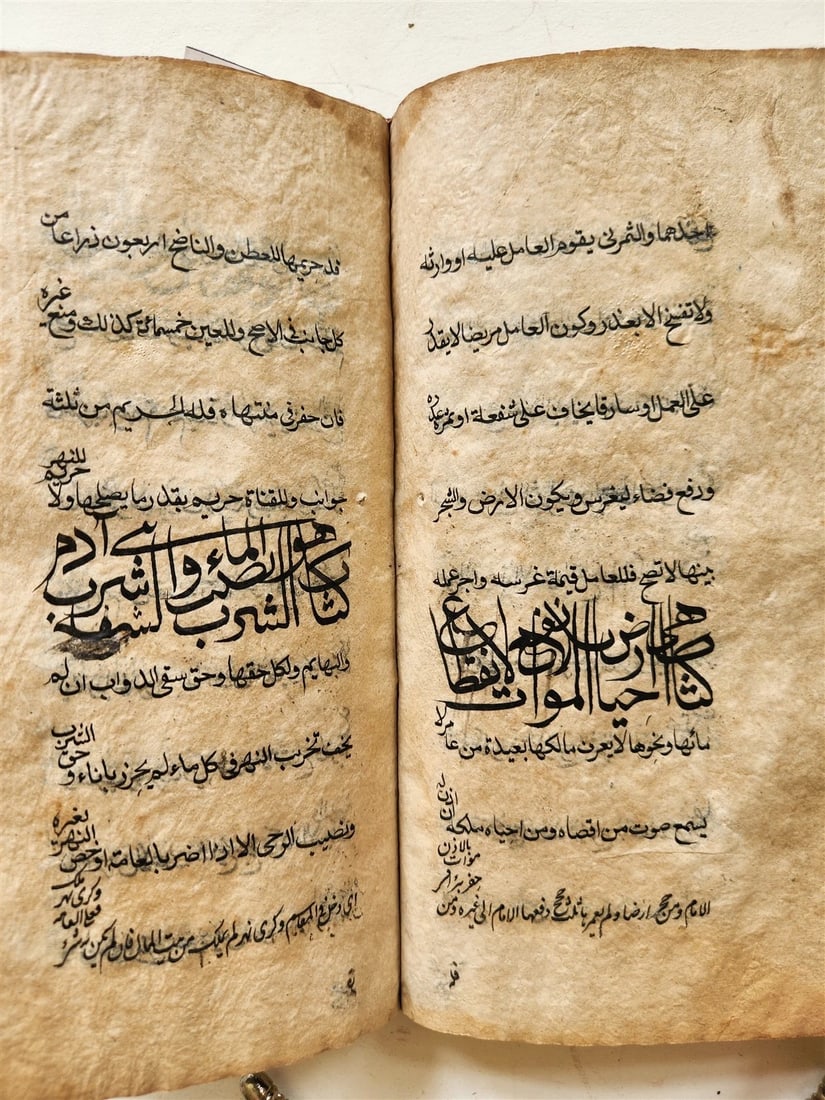 احدهما والثمرنى يقوم العامل عليه او وارثه
ولا تفسخ الا بعذر وكون العامل مريضا لا يقدر
على العمل او سارقا يخاف على سعفه او ثمره عذر
ودفع فضاء ليغرس ويكون الارض والشجر
بينهما لا تصح فللعامل قيمة غرسه واجر عمله
كتاب احياء الموات هى ارض بلا نفع لانقطاع
مائها ونحوها لا يعرف مالكها بعيدة من عامر لا
يسمع صوت من اقصاه ومن احياه ملكه ان اذن له
الامام ومن حجر ارضا ولم يعمرها ثلث حجج دفعها الامام الى غيره ومن حفر بئرا فى موات بالاذن
فله
فله حريمها للعطن والناضح اربعون ذراعا من
كل جانب فى الاصح وللعين خمسمائة كذلك ومنع غيره
فان حفر فى منتهاه فله الحريم من ثلثة
جوانب وللقناة حريم بقدر ما يصلحها ولا حريم للنهر
كتاب الشرب هو نصيب الماء والشفة شرب بنى آدم
والبهايم ولكل حقها وحق سقى الدواب ان لم
يخف تخريب النهر فى كل ماء لم يحرز باناء وحق الشرب
ونصب الرحى الا اذا اضر بالعامة او خص النهر بغيره
اى دخل فى المقاسم وكرى نهر لم يملك من بيت المال فان لم يكن فعلى العامة وكرى نهر ملك